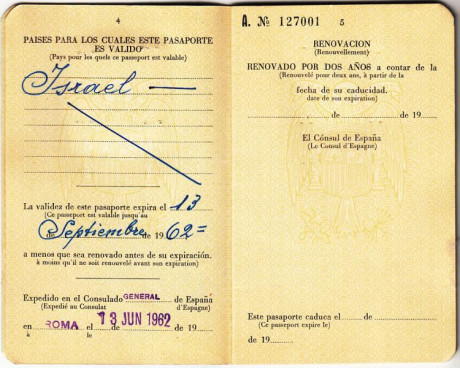 4
PAISES PARA LOS CUALES ESTE PASAPORTE
ES VALIDO
(Pays pour les quels ce passeport est valable)
Israel —
La validez de este pasaporte expira el 13
(Ce passeport est valable jusqu'au
de Septiembre de 1962=
a menos que sea renovado antes de su expiración.
à moins qu'il ne soit renouvelé avant son expiration)
Expedido en el Consulado GENERAL de España
(Expedié au Consulat d'Espagne)
en ROMA el 13 JUN 1962 de 19
à le
A. Nº 127001 5
RENOVACION
(Renouvellement)
RENOVADO POR DOS AÑOS a contar de la
(Renouvelé pour deux ans, à partir de la
fecha de su caducidad.
date de son expiration)
de de 19
El Cónsul de España
(Le Consul d'Espagne)
Este pasaporte caduca el de
(Ce passeport expire le)
de 19